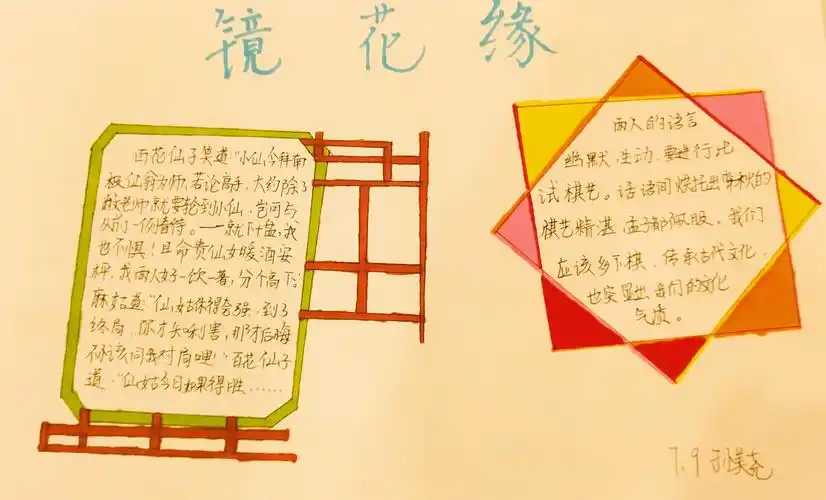 镜花缘
百花仙子笑道:“小仙今拜南
极仙翁为师,若论高手,大约除了
敝老师就要轮到小仙,岂可与
从前一例看待。——就下十盘,我
也不惧!且命贵仙女暖酒安
枰,我两人好一饮一著,分个高下。”
麻姑道:“仙姑休得会强,到了
终局,你才知利害,那才后悔
不该同我对局哩!”百花仙子
道:“仙姑今日如果得胜……
两人的语言
幽默生动,要进行比
试棋艺。话语间烘托出弈秋的
棋艺精湛,孟子都佩服。我们
应该多下棋,传承古代文化,
也突显出我们的文化
气质。
7.9